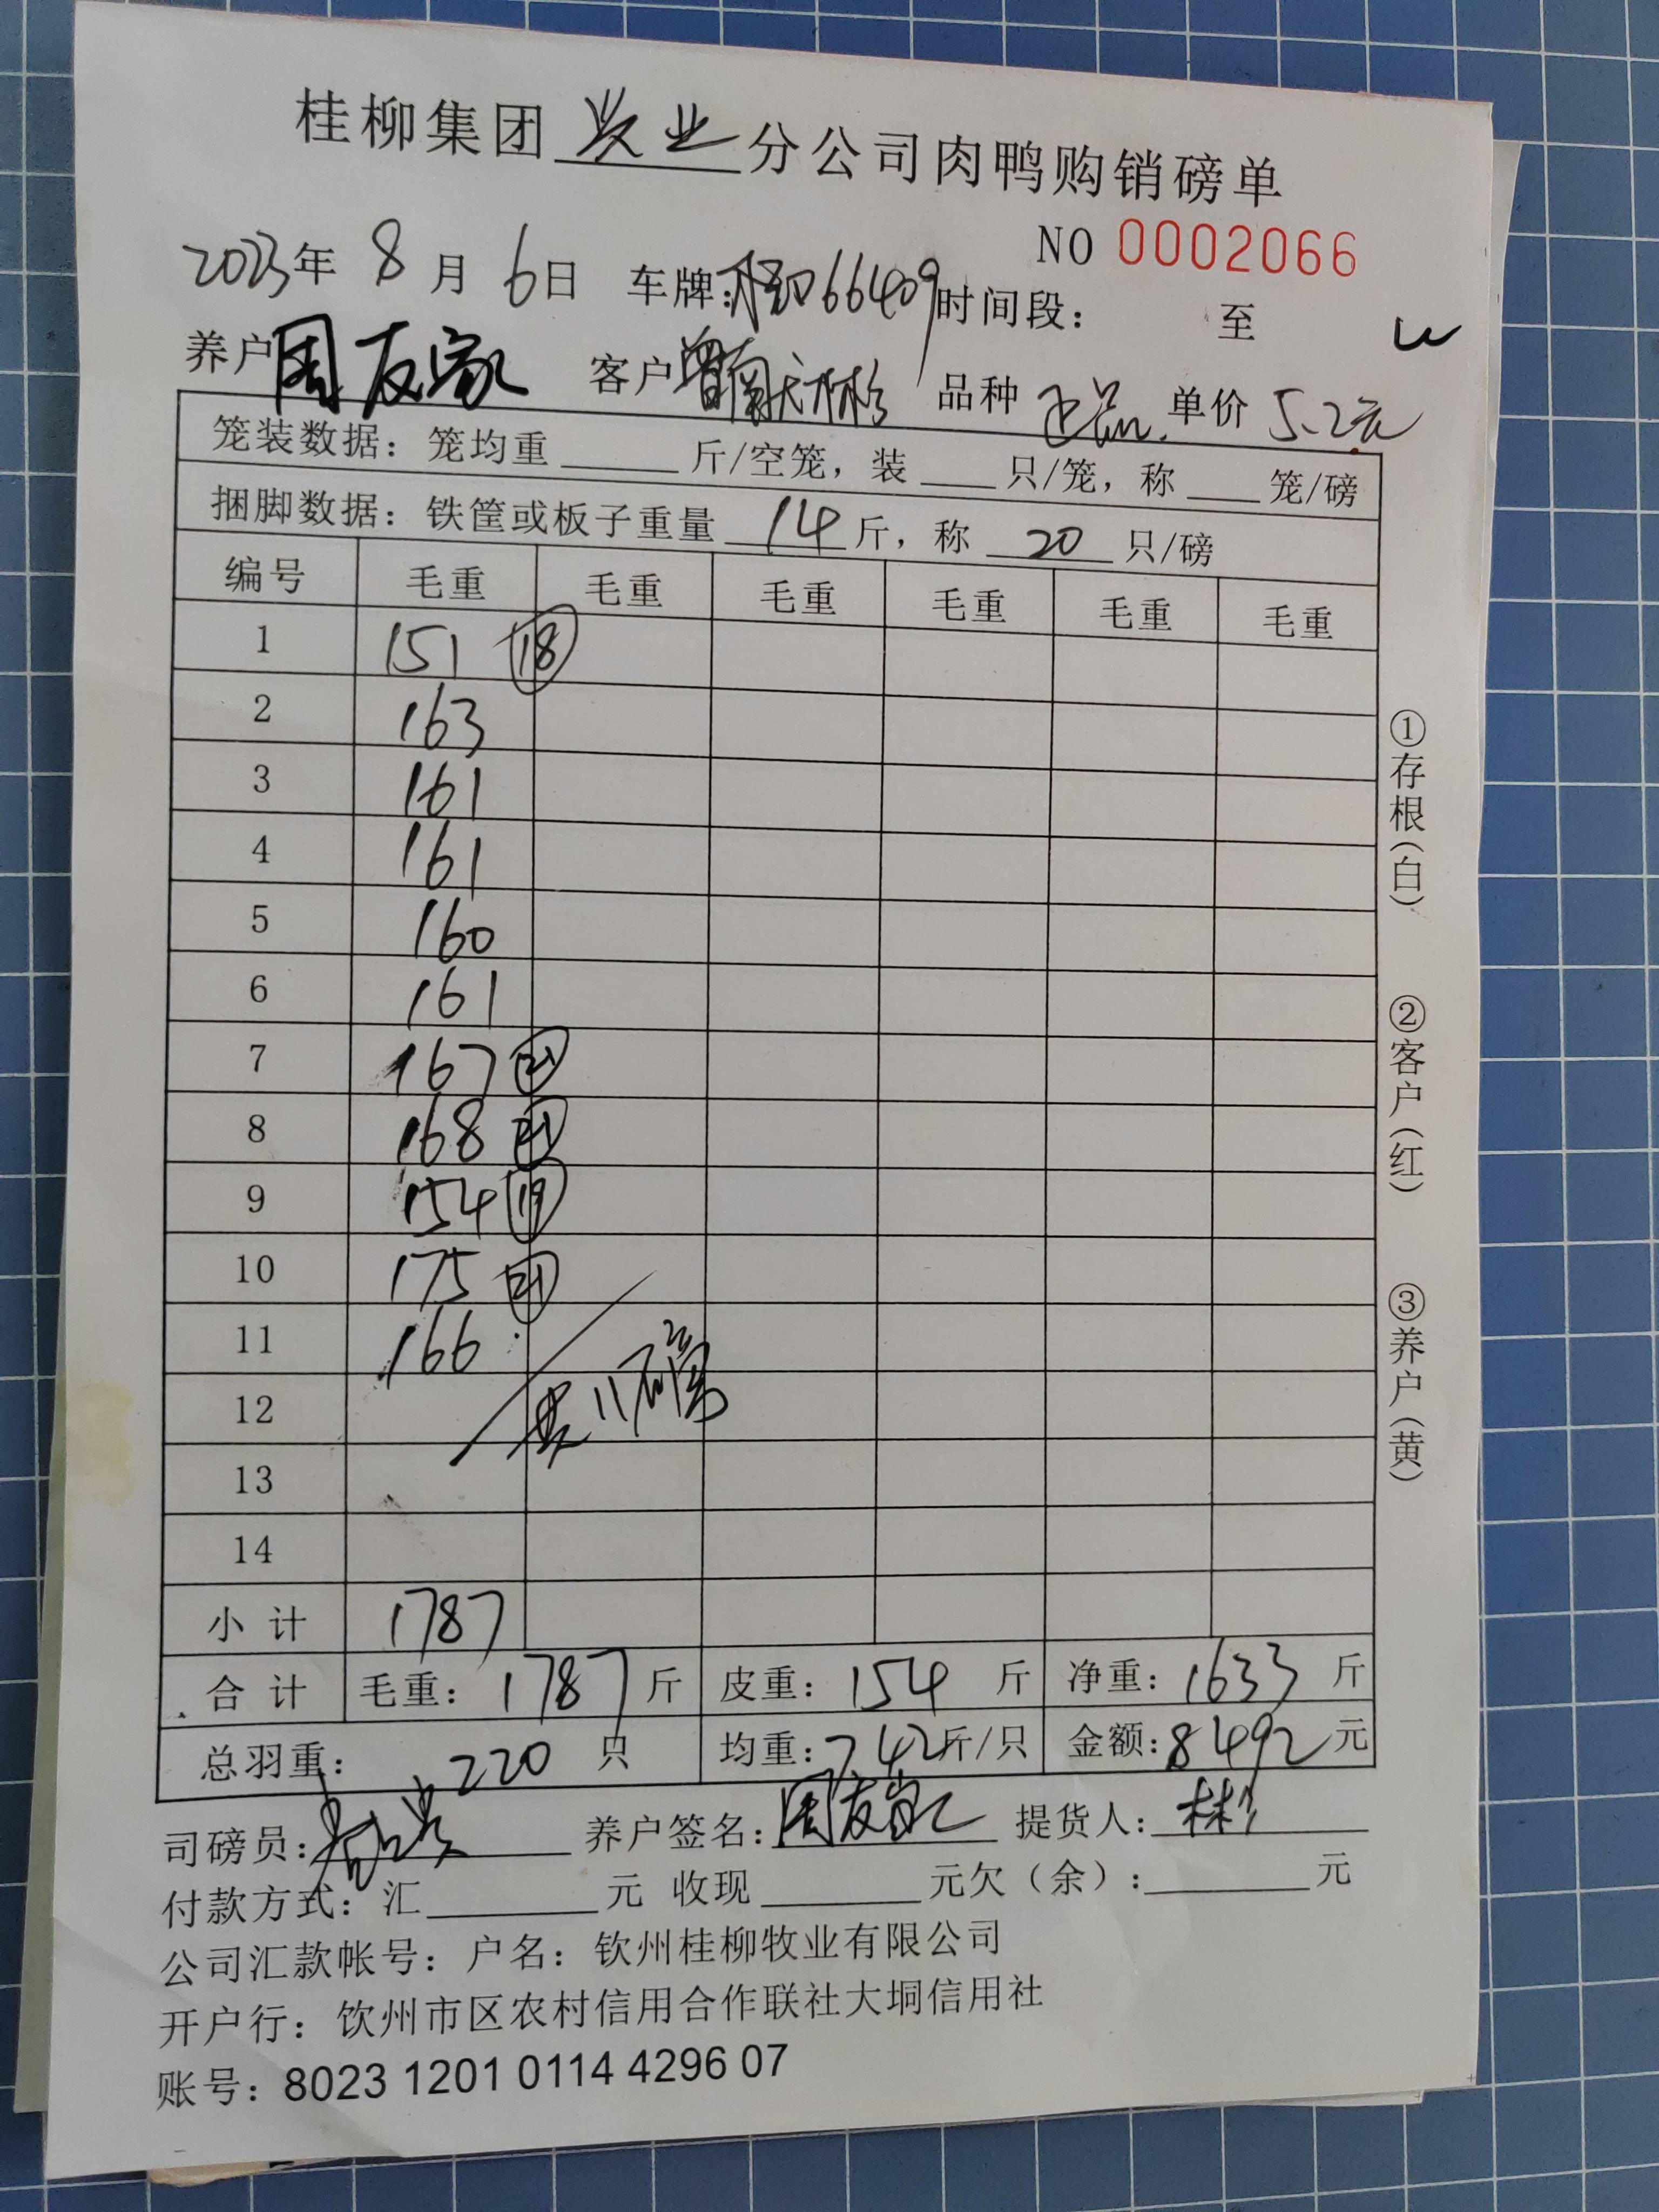 桂柳集团 兴业 分公司肉鸭购销磅单
NO 0002066
2023年 8月 6日 车牌: 桂D66409 时间段: 至
养户 周友家 客户 品种 正品 单价 5.2元
笼装数据: 笼均重 斤/空笼, 装 只/笼, 称 笼/磅
捆脚数据: 铁筐或板子重量 14 斤, 称 20 只/磅
编号 毛重 毛重 毛重 毛重 毛重 毛重
1 151 18
2 163
3 161
4 161
5 160
6 161
7 167 21
8 168 21
9 154 19
10 175 21
11 166
12 共11磅
13
14
小计 1787
合计 毛重: 1787 斤 皮重: 154 斤 净重: 1633 斤
总羽重: 220 只 均重: 7.42 斤/只 金额: 8492 元
司磅员: 养户签名: 周友家 提货人: 彬
付款方式: 汇 元 收现 元欠(余): 元
公司汇款帐号: 户名: 钦州桂柳牧业有限公司
开户行: 钦州市区农村信用合作联社大垌信用社
账号: 8023 1201 0114 4296 07
①存根(白)
②客户(红)
③养户(黄)